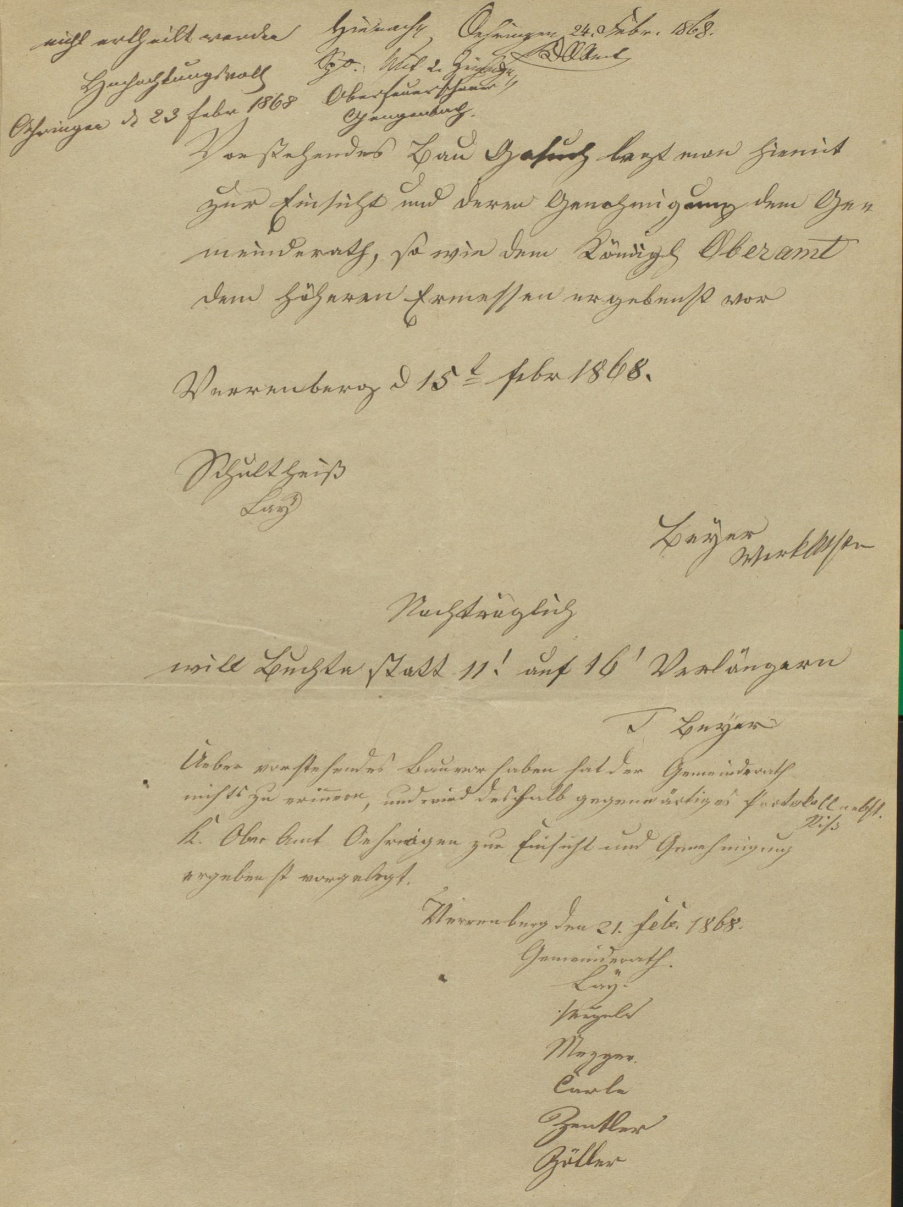 nicht ertheilt werden
Hochachtungsvoll
Öhringen d 23 Febr 1868
Hienach, Oehringen 24. Febr. 1868.
Oberfeuerschauer
Gengenbach.
Vorstehendes Bau Gesuch legt man hiemit
zur Einsicht und deren Genehmigung dem Ge-
meinderath, so wie dem Königl Oberamt
dem höheren Ermessen ergebenst vor
Verrenberg d 15t Febr 1868.
Schultheiß
Lay
Beyer
Werkmstr
Nachträglich
will Buchta statt 11' auf 16' Verlängern
T Beyer
Ueber vorstehendes Bauvorhaben hat der Gemeinderath
nichts zu erinnern, und wird deshalb gegenwärtiges Protokoll nebst
Riß
K. Ober Amt Oehringen zur Einsicht und Genehmigung
ergebenst vorgelegt.
Verrenberg den 21. Feb. 1868.
Gemeinderath.
Lay.
Mezger.
Carle
Zentler